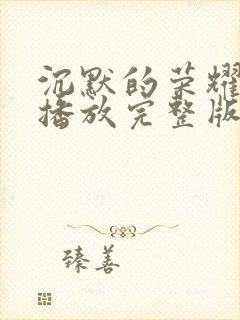 沉默的荣耀
播放完整版
臻善